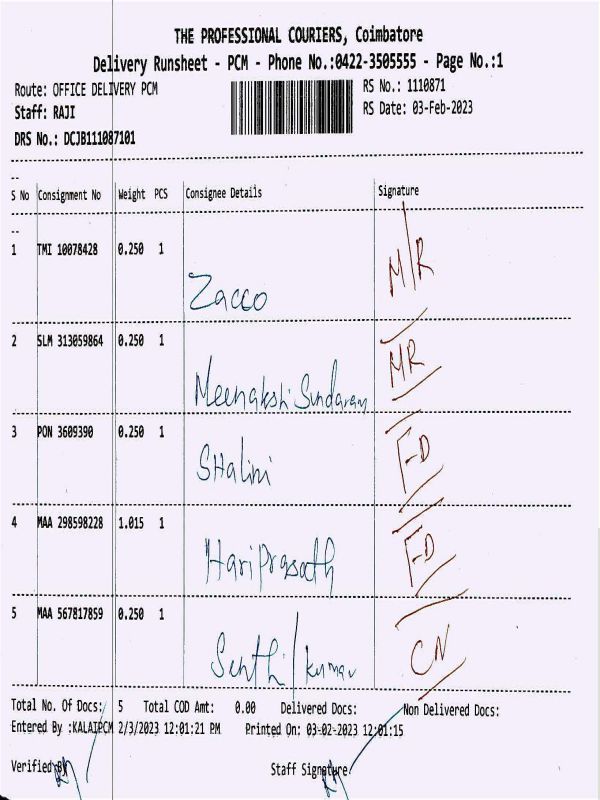 THE PROFESSIONAL COURIERS, Coimbatore
Delivery Runsheet - PCM - Phone No.:0422-3505555 - Page No.:1
Route: OFFICE DELIVERY PCM RS No.: 1110871
Staff: RAJI RS Date: 03-Feb-2023
DRS No.: DCJB111087101
S No Consignment No Weight PCS Consignee Details Signature
1 TMI 10078428 0.250 1
Zacco M/R
2 SLM 313059864 0.250 1
Meenakshi Sundaram MR
3 PON 3609390 0.250 1
SHalini F-D
4 MAA 298598228 1.015 1
HariPrasath F-D
5 MAA 567817859 0.250 1
Senthil kumar CN
Total No. Of Docs: 5 Total COD Amt: 0.00 Delivered Docs: Non Delivered Docs:
Entered By :KALAIPCM 2/3/2023 12:01:21 PM Printed On: 03-02-2023 12:01:15
Verified By Staff Signature